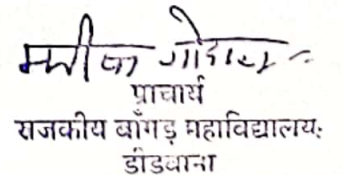 प्राचार्य
राजकीय बाँगड़ महाविद्यालय:
डीडवाना